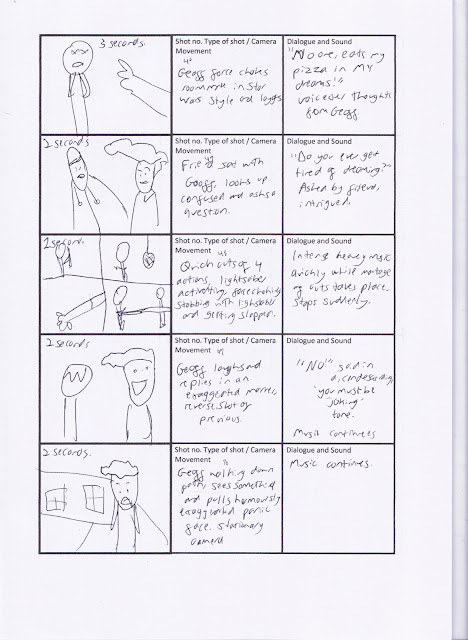 3 seconds.
Shot no. Type of shot / Camera
Movement
Geogg force chokes
roommate in Star
Wars style and laughs
Dialogue and Sound
"No one, eats my
pizza in MY
dreams!"
voiceover thoughts
from Geogg.
2 seconds
Shot no. Type of shot / Camera
Movement
Friend sat with
Geogg, looks up
confused and asks a
question.
Dialogue and Sound
"Do you ever get
tired of dreaming?"
Asked by friend,
intrigued.
1 second.
Shot no. Type of shot / Camera
Movement
Quick cuts of 4
actions, lightsaber
activating, force choking
stabbing with lightsaber
and getting slapped.
Dialogue and Sound
Intense heavy music
quickly while montage
of cuts takes place.
Stops suddenly.
2 seconds
Shot no. Type of shot / Camera
Movement
Geogg laughs and
replies in an
exaggerated manner,
reverse shot of
previous.
Dialogue and Sound
"No!" said in
a condescending
'you must be
joking'
tone.
Music continues
2 seconds.
Shot no. Type of shot / Camera
Movement
Geogg walking down
path, sees something
and pulls humorously
exaggerated panic
face. Stationary
camera
Dialogue and Sound
Music continues.